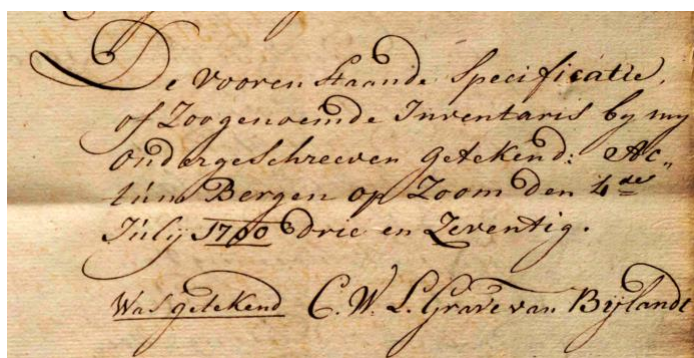 De vooren Staande Specificatie,
of Zoogenoemde Inventaris by my
Ondergeschreeven getekend: Ac„
tum Bergen op Zoom den 4de
Julij 1700 drie en Zeventig.
Was getekend C. W. L. Grave van Bijlandt